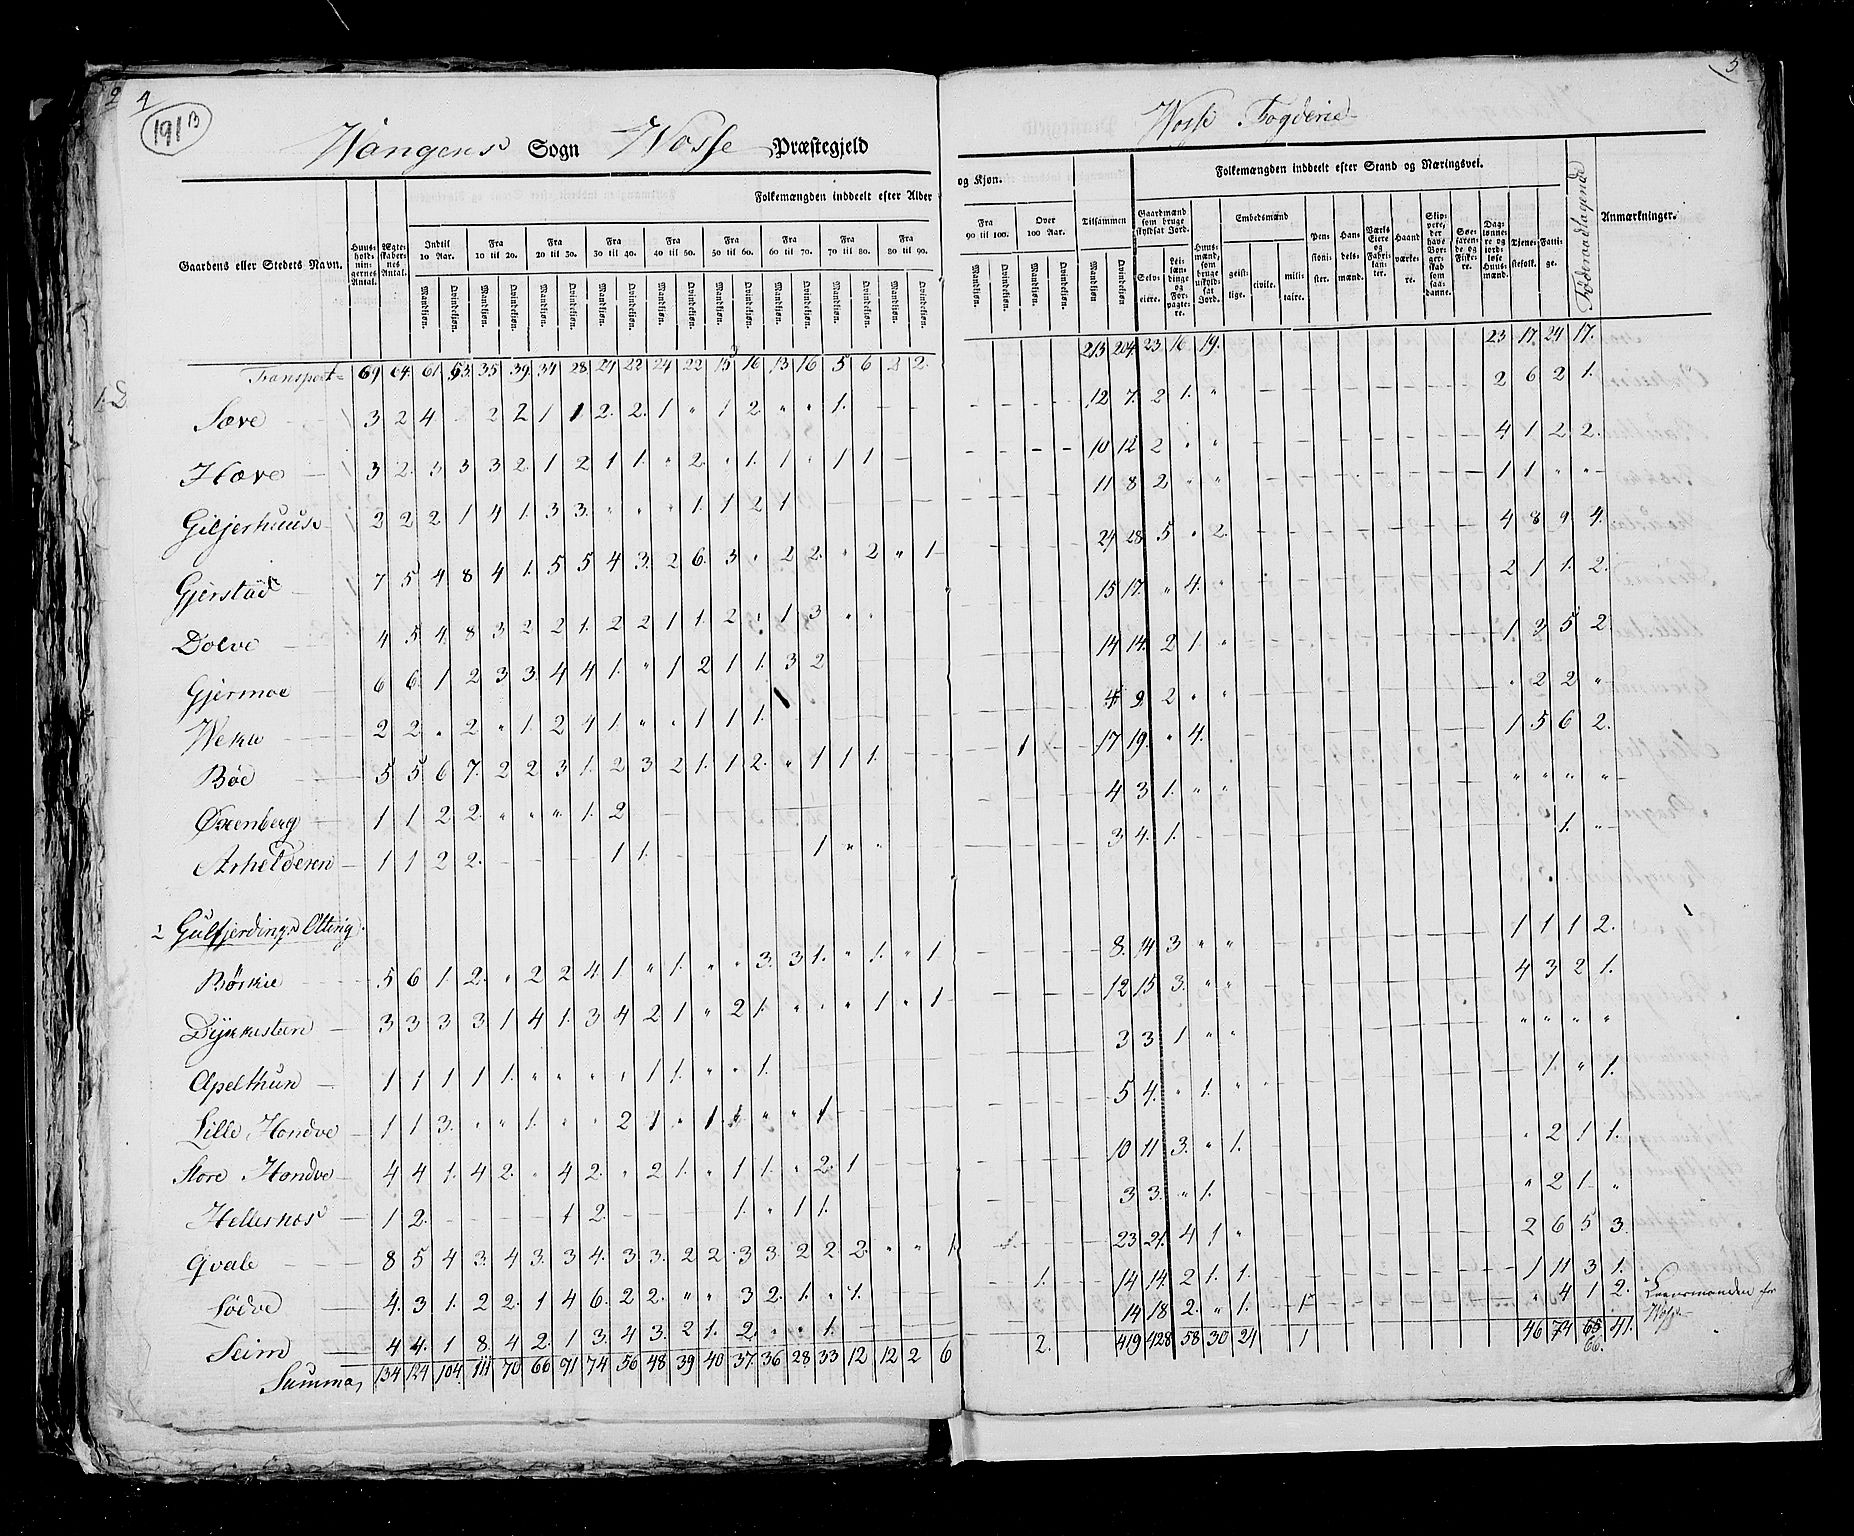 2 4 5
191 B
Wangens Sogn Wosse Præstegjeld
Wosse Fogderie
Gaardens eller Stedets Navn. Huusholdningernes Antal. Ægteskabernes Antal. Folkemængden inddeelt efter Alder og Kjøn. Folkemængden inddeelt efter Stand og Næringsvei. Føderaadtagende Anmærkninger.
Indtil 10 Aar. Fra 10 til 20. Fra 20 til 30. Fra 30 til 40. Fra 40 til 50. Fra 50 til 60. Fra 60 til 70. Fra 70 til 80. Fra 80 til 90. Fra 90 til 100. Over 100 Aar. Tilsammen
Mandkjøn. Qvindekjøn.
Gaardmænd som bruge skyldsat Jord. Selveiere. Leilændinge og Forpagtere. Huusmænd, som bruge uskyldsat Jord. Embedsmænd geistlige. civile. militaire. Pensionister. Handelsmænd. Værks Eiere og Fabrikanter. Haandværkere. Skippere, der have Borgerskab som saadanne. Søefarende og Fiskere. Daglønnere og jordløse Huusmænd. Tjenestefolk. Fattige.
Transport 69 64. 61. 53. 35 39. 34 28 29 22 24 22 15 16 13 16 5 6 2 2. 213 204. 23 16 19. 23 17. 24 17.
Sæve 3 2 4 2 2 1 1 2. 2. 1 " 1 2 " " 1. 12 7. 2 1. " 2 6 2 1.
Hæve 3 2. 3 3 3 2. 1 2 1 1. " 2. " 1. 1 " 1 1 10 12 2 " " 4 1 2 2.
Giljerhuus 2 2 2 1 4 1. 3 3. " " " 1. 1 2 1 11 8 2 " " 1 1 " "
Gjerstad 7 5 4 8 4 1. 5 5 4 3. 2 6. 3 " 2 2. " 2 " 1 29 28 5 " 2. 4 8 9. 4.
Dolve 4 5 4. 8 3 2 2 1. 2 2 1 1. 2 " 1 3 " " 15 17. " 4. " 2 1 1. 2.
Gjermoe 6 6. 1 2 3 3. 4 4 1. " 1 2 1 1. 3 2 14 14. 2 1. " 1 3 5 2
Weka 2 2. " 2 " 1. 2 4 1. " " 1 1 1. 9. 2 " " " 2 2 "
Bøe 5 5 6 7. 2 2 3 1. 2 3 2 1. 1 2. " 1 1 1. 1 17 19. " 4. 1 5 6 2.
Øxenberg 1 1 2 2. " " " 1. 2 4 3 1. " " " " " "
Arhelderen 1 1 2 2. 1 1. 1 " " 3 4. 1. 1. "
2 Gulfjerdings Otting
Børkie 5 6 1 2. " 2 2 4. 1 " 1. " " 3. 3 1. " 1. " 1 8. 14 3 " " 1 1 1 2.
Dykkesteen 3 3 3 3. 1 4 1. 3 4 2 1 " 2 1. " " " 1 " 1 12 15 3. " " 4 3 2 1.
Apelthun 1 1 1 1 1. " " " " 1 1. " " 1. 3 3 1 " " " " " "
Lille Hondve 1 1 3. " " 1. " " 2 1 " 1 1 " " 1 5 4. " 1. " 1. " 1.
Store Hondve 4 4 1. 4 2. " 4 2. " 2 1. " 1 1. " 2. 1 10 11 3. " 1. " 2 1 1.
Hellesnes 1 2. 1 2. 1. " 1 1. 3 3. " 1. " 2 1. "
Qvale 8 5 4 3. 4 3. 3 4. 3 3. 2 2 3 3. 2 2 2. " " 1. 23 21. 4 1 " 2 6 5 3.
Lødve 4. 3 1. 2 2. 1 4 6. 2 2. " " 3 2. 1. " 1. 1. 14 14. 2 1. 1. 1 11 3 1.
Seim 4 4. 1 8. 4 2. 1 3. 4 3. 2 1. 2. " " 1. 14 18 2. " 1. 1 " 4 1 2. Leensmanden for Wosse
Summa 134 124 104. 111 70 66 91 74 56 48 39 40 37. 36 28 33 12 12 2 6 2. 419 428 58 30 24 1 46 74 65 41.
66.